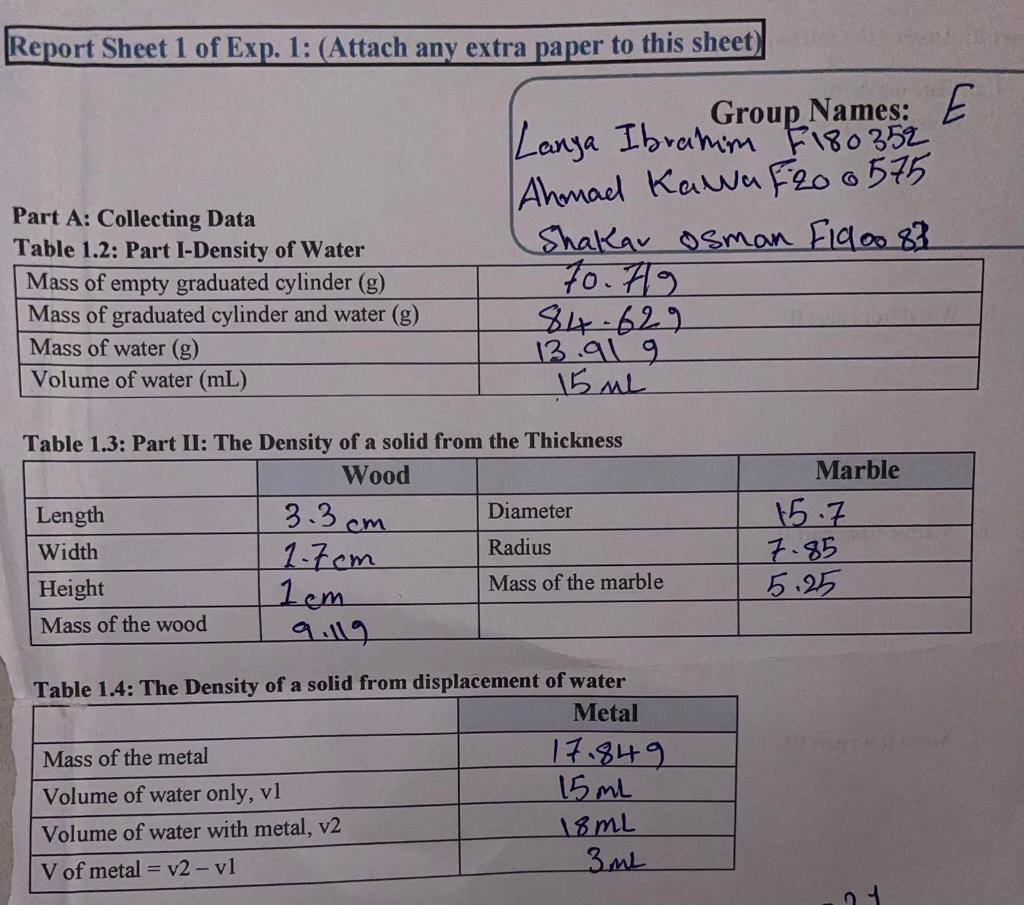 Report Sheet 1 of Exp. 1: (Attach any extra paper to this sheet)
Group Names: E
Lanya Ibrahim F180352
Ahmad Kawa F200575
Shakar osman F190087
Part A: Collecting Data
Table 1.2: Part I-Density of Water
Mass of empty graduated cylinder (g) 70.71g
Mass of graduated cylinder and water (g) 84.62g
Mass of water (g) 13.91 g
Volume of water (mL) 15 mL
Table 1.3: Part II: The Density of a solid from the Thickness
Wood Marble
Length 3.3 cm Diameter 15.7
Width 1.7cm Radius 7.85
Height 1 cm Mass of the marble 5.25
Mass of the wood 9.11g
Table 1.4: The Density of a solid from displacement of water
Metal
Mass of the metal 17.84g
Volume of water only, v1 15 mL
Volume of water with metal, v2 18 mL
V of metal = v2 – v1 3 mL